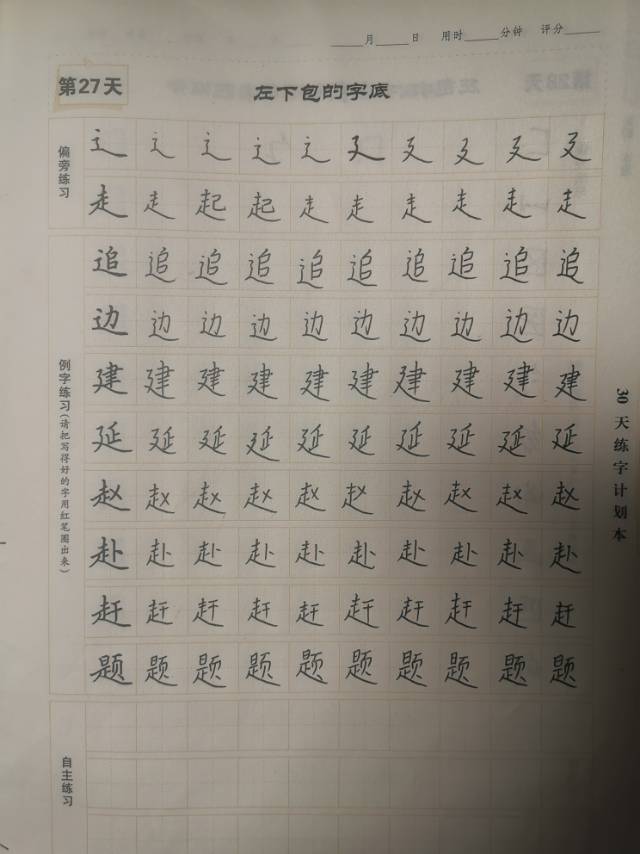 月 日 用时 分钟 评分
第27天
左下包的字底
偏旁练习
辶 辶 辶 辶 辶 廴 廴 廴 廴 廴
走 走 起 起 走 走 走 走 走 走
例字练习(请把写得好的字用红笔圈出来)
追 追 追 追 追 追 追 追 追 追
边 边 边 边 边 边 边 边 边 边
建 建 建 建 建 建 建 建 建 建
延 延 延 延 延 延 延 延 延 延
赵 赵 赵 赵 赵 赵 赵 赵 赵 赵
赴 赴 赴 赴 赴 赴 赴 赴 赴 赴
赶 赶 赶 赶 赶 赶 赶 赶 赶 赶
题 题 题 题 题 题 题 题 题 题
自主练习
30天练字计划本